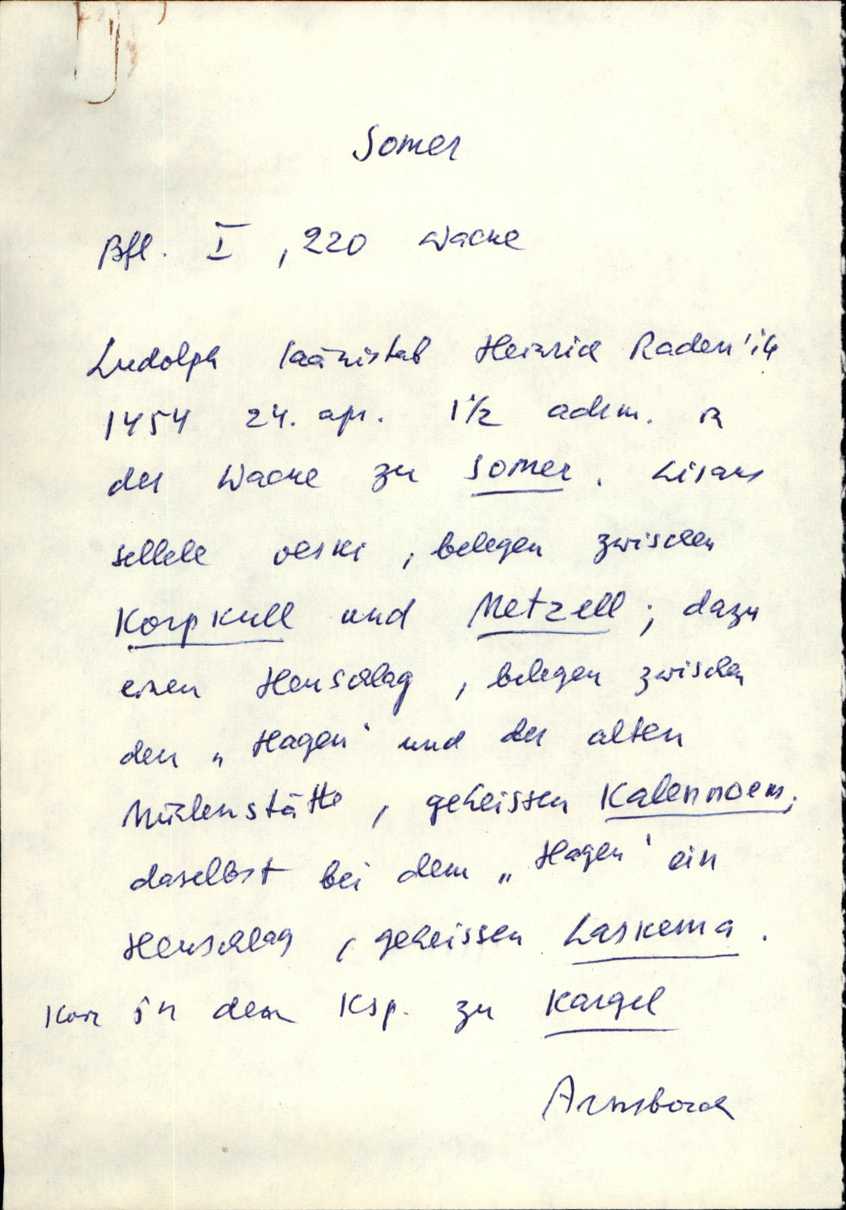 Somer
Bfl. I, 220 Wacke
Ludolph läänistab Heinrich Raden'ile
1454 24. apr. 1½ adrm. in
der Wacke zu Somer. Lisaks
sellele veski, belegen zwischen
Korpkull und Metzell; dazu
einen Heuschlag, belegen zwischen
den „Hagen" und der alten
Mühlenstätte, geheissen Kalennoem;
daselbst bei dem „Hagen" ein
Heuschlag, geheissen Laskema.
in dem Ksp. zu Kargel
Arnsborch